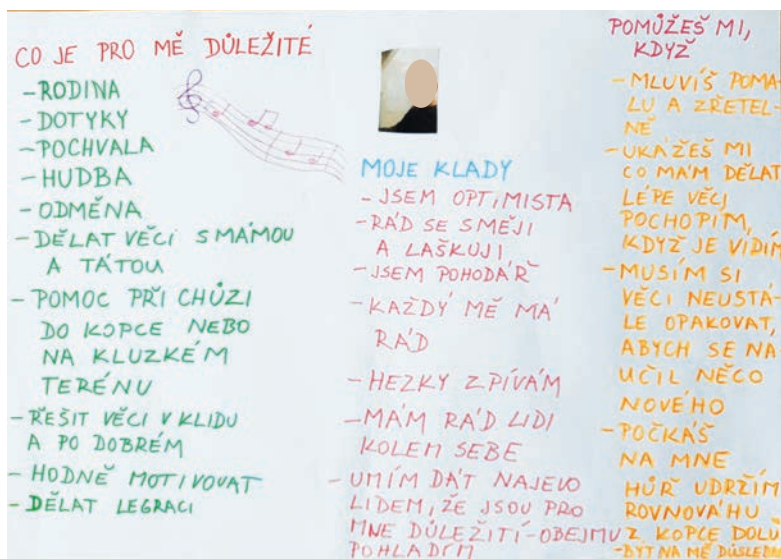 CO JE PRO MĚ DŮLEŽITÉ
-RODINA
-DOTYKY
-POCHVALA
-HUDBA
-ODMĚNA
-DĚLAT VĚCI S MÁMOU
A TÁTOU
-POMOC PŘI CHŮZI
DO KOPCE NEBO
NA KLUZKÉM
TERÉNU
-ŘEŠIT VĚCI V KLIDU
A PO DOBRÉM
-HODNĚ MOTIVOVAT
-DĚLAT LEGRACI
MOJE KLADY
-JSEM OPTIMISTA
-RÁD SE SMĚJI
A LAŠKUJI
-JSEM POHODÁŘ
-KAŽDÝ MĚ MÁ
RÁD
-HEZKY ZPÍVÁM
-MÁM RÁD LIDI
KOLEM SEBE
-UMÍM DÁT NAJEVO
LIDEM, ŽE JSOU PRO
MNE DŮLEŽITÍ-OBEJMU
POHLADÍM
POMŮŽEŠ MI,
KDYŽ
-MLUVÍŠ POMA-
LU A ZŘETEL-
NĚ
-UKÁŽEŠ MI
CO MÁM DĚLAT
LÉPE VĚCI
POCHOPÍM,
KDYŽ JE VIDÍM
-MUSÍM SI
VĚCI NEUSTÁ-
LE OPAKOVAT,
ABYCH SE NA
UČIL NĚCO
NOVÉHO
-POČKÁŠ
NA MNE
HŮŘ UDRŽÍM
ROVNOVÁHU
Z KOPCE DOLU
-BÝT NA MĚ